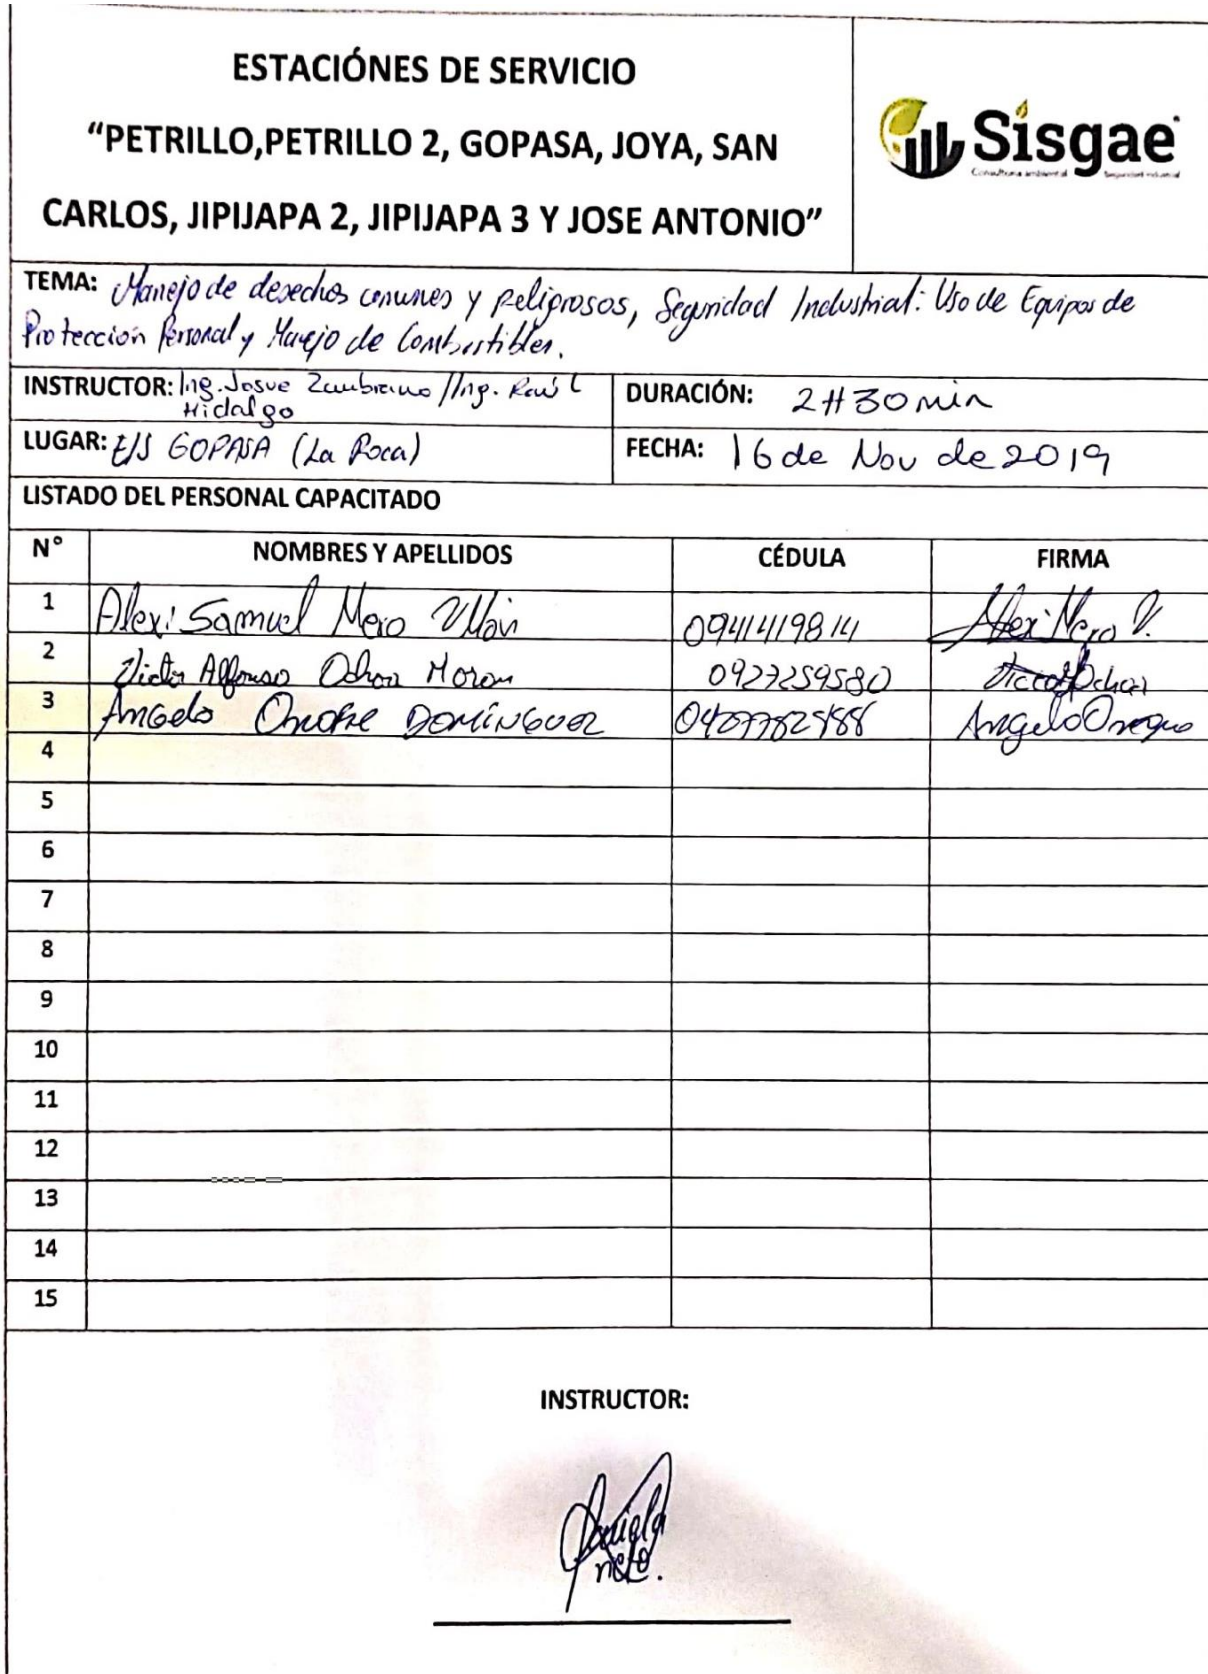 ESTACIÓNES DE SERVICIO
“PETRILLO,PETRILLO 2, GOPASA, JOYA, SAN
CARLOS, JIPIJAPA 2, JIPIJAPA 3 Y JOSE ANTONIO”
Sisgae
Consultoria ambiental Seguridad industrial
TEMA: Manejo de desechos comunes y peligrosos, Seguridad Industrial: Uso de Equipos de
Protección Personal y Manejo de Combustibles.
INSTRUCTOR: Ing. Josue Zambrano / Ing. Raúl
Hidalgo
DURACIÓN: 2H30 min
LUGAR: E/S GOPASA (La Roca)
FECHA: 16 de Nov de 2019
LISTADO DEL PERSONAL CAPACITADO
N° NOMBRES Y APELLIDOS CÉDULA FIRMA
1 Alexi Samuel Mero 0941419814 Alexi Mero V.
2 Victor Alfonso Ochoa Moron 0927259580 Victor Ochoa
3 Angelo Onofre DOMÍNGUEZ Angelo
4
5
6
7
8
9
10
11
12
13
14
15
INSTRUCTOR: